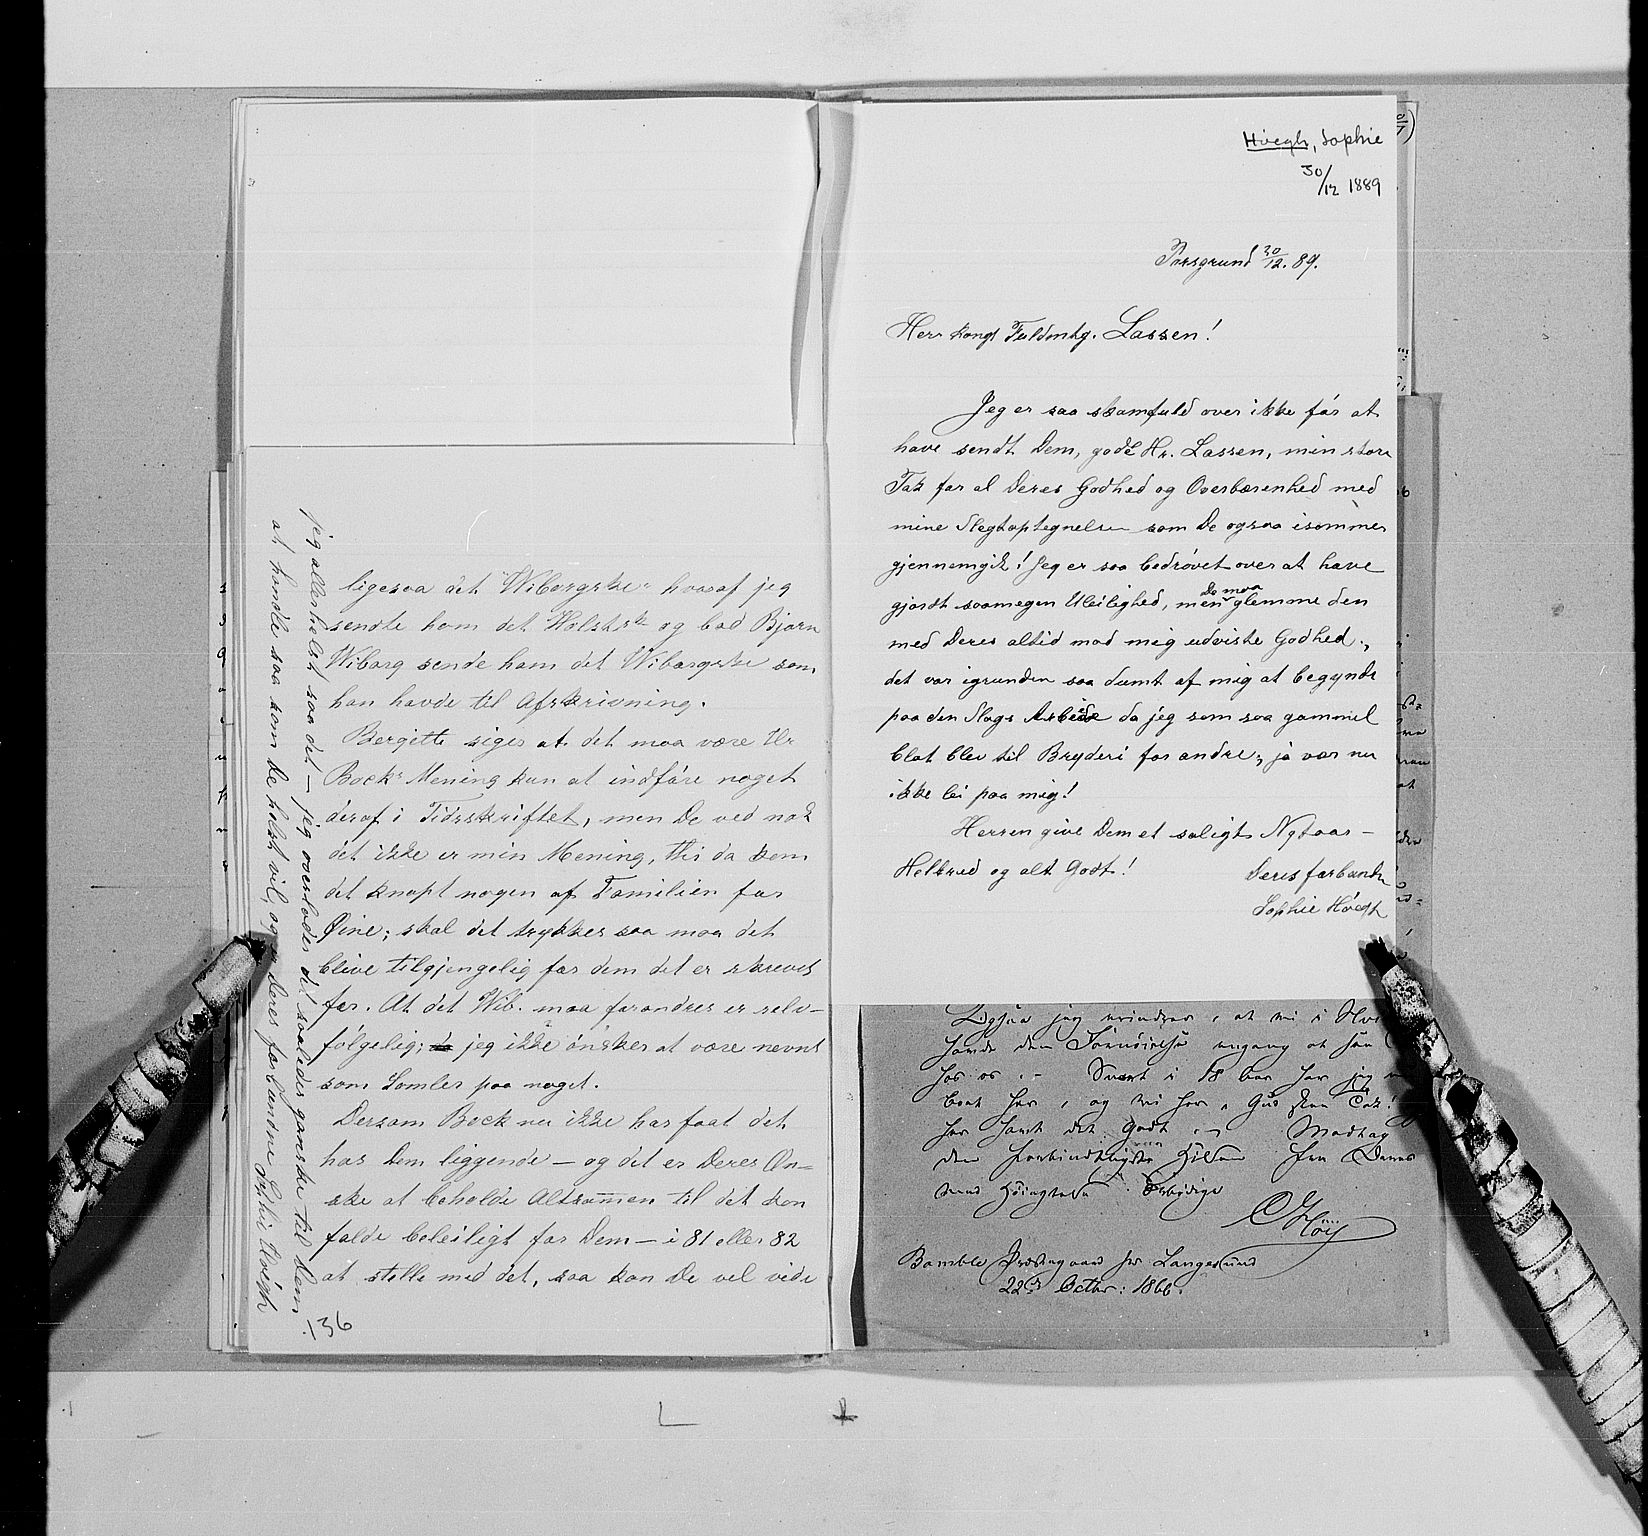 ligesaa det Wiborgske hvoraf jeg
sendte ham det Holstske og bad Bjørn
Wiborg sende ham det Wiborgske som
han havde til Afskrivning.
Bergitte siger at det maa være Hr
Bocks Mening kun at indføre noget
deraf i Tidsskriftet, men De ved nok
det ikke er min Mening, thi da kom
det knapt nogen af Familien for
Øine; skal det trykkes saa maa det
blive tilgjengelig for dem det er skrevet
for. At det Wib. maa forandres er selv-
følgelig; jeg ikke ønsker at være nevnt
som Samler paa noget.
Dersom Bock nu ikke har faat det
hos Dem liggende — og det er Deres Øn=
ske at beholde Altsammen til det kan
falde beleiligt for Dem — i 81 eller 82
at stelle med det, saa kan De vel vide
136
jeg allerhelst saa det — jeg overlader det saaledes ganske til Dem
at handle saa som De helst vil, og er Deres forbundne Sophie Høegh
Höegh, Sophie
30/12 1889
Porsgrund 30/12. 89.
Herr kongl Fuldmtg. Lassen!
Jeg er saa skamfuld over ikke før at
have sendt Dem, gode Hr. Lassen, min store
Tak for al Deres Godhed og Overbærenhed med
mine Slegtoptegnelser som De ogsaa isommer
gjennemgik! Jeg er saa bedrøvet over at have
gjordt saamegen Uleilighed, men De maa glemme den
med Deres altid mod mig udviste Godhed;
det var igrunden saa dumt af mig at begynde
paa den Slags Arbeide da jeg som saa gammel
blot blev til Bryderi for andre; ja vær nu
ikke lei paa mig!
Herren give Dem et saligt Nytaar —
Helbred og alt Godt!
Deres forbundne
Sophie Høegh
jeg erindrer, at vi i
havde den Fornøielse engang at see
hos os. — Snart i 18 Aar har jeg
boet her, og vi har, Gud skee Tak!
her havt det godt. — Modtag
den forbindtligste Hilsen fra Deres
med Høiagtelse Ærbødige
Høÿ
Bamble Præstegaard pr Langesund
22d Octbr: 1866.